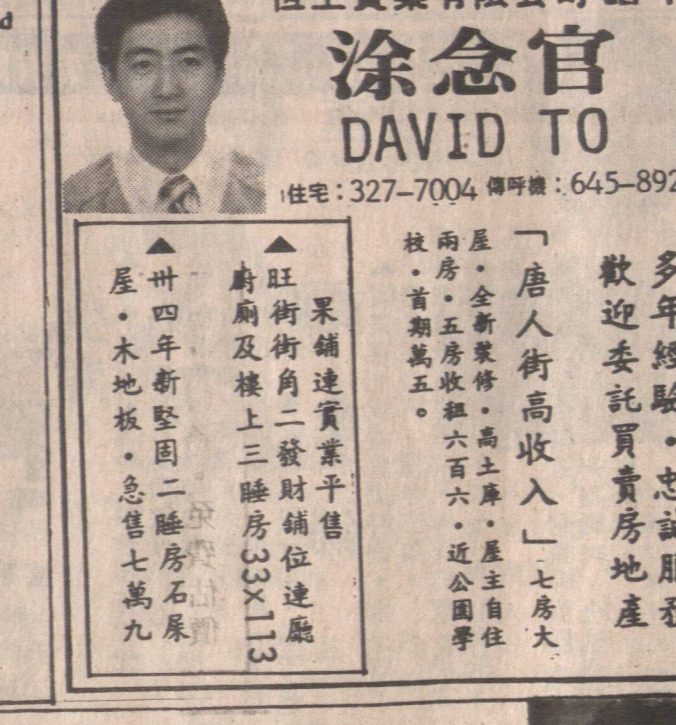 涂念官
DAVID TO
住宅：327-7004 傳呼機：645-892
多年經驗・忠誠服務
歡迎委託買賣房地產
「唐人街高收入」七房大
屋・全新裝修・高土庫・屋主自住
兩房・五房收租六百六・近公園學
校・首期萬五。
果舖連實業平售
▲旺街街角二發財舖位連廳
廚廁及樓上三睡房33x113
▲卅四年新堅固二睡房石屎
屋・木地板・急售七萬九